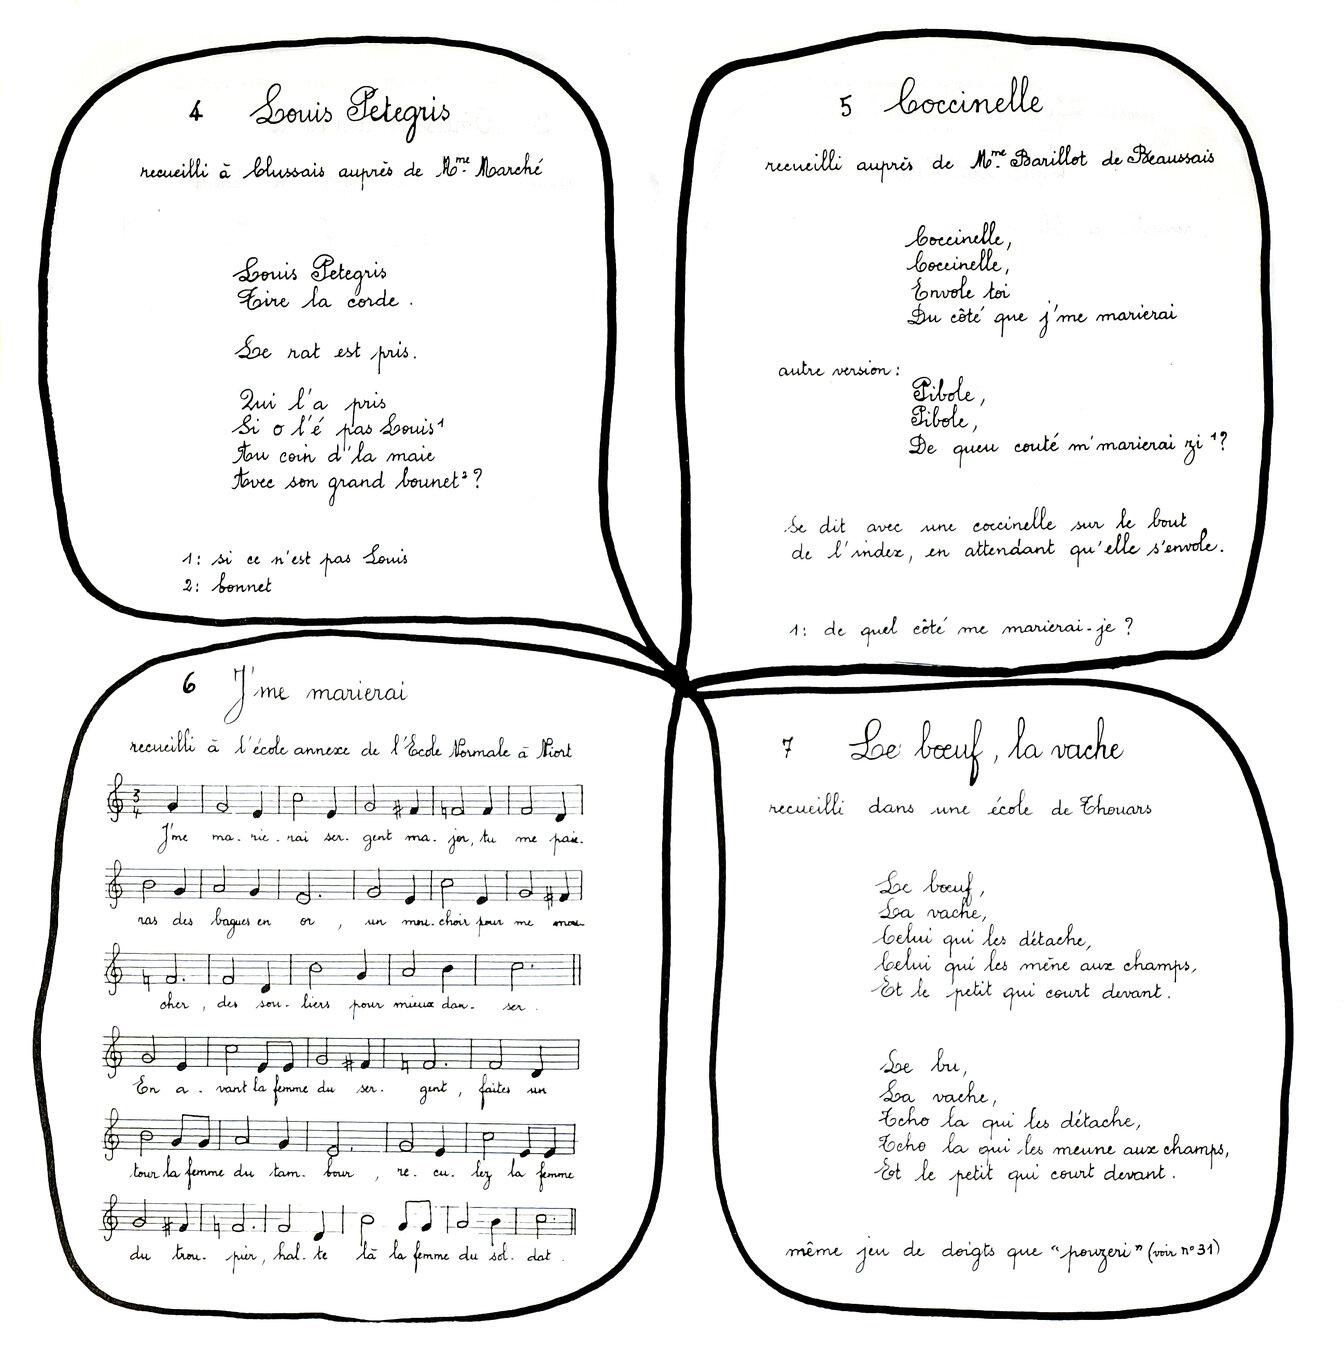 4 Louis Petegris
recueilli à Clussais auprès de Mme. Marché
Louis Petegris
Tire la corde.
Le rat est pris.
Qui l'a pris
Si o l'é pas Louis¹
Au coin d'la maie
Avec son grand bounet² ?
1: si ce n'est pas Louis
2: bonnet
5 Coccinelle
recueilli auprès de Mme. Barillot de Beaussais
Coccinelle,
Coccinelle,
Envole toi
Du côté que j'me marierai
autre version :
Pibole,
Pibole,
De queu couté m'marierai zi ¹?
Se dit avec une coccinelle sur le bout
de l'index, en attendant qu'elle s'envole.
1: de quel côté me marierai-je ?
6 J'me marierai
recueilli à l'école annexe de l'Ecole Normale à Niort
3/4
J'me ma. rie. rai ser. gent ma. jor, tu me paie.
ras des bagues en or, un mou. choir pour me mou.
cher, des sou. liers pour mieux dan. ser.
En a. vant la femme du ser. gent, faites un
tour la femme du tam. bour, re. cu. lez la femme
du trou. pier, hal. te là la femme du sol. dat.
7 Le bœuf, la vache
recueilli dans une école de Thouars
Le bœuf,
La vache,
Celui qui les détache,
Celui qui les mène aux champs,
Et le petit qui court devant.
Le bu,
La vache,
Tcho la qui les détache,
Tcho la qui les meune aux champs,
Et le petit qui court devant.
même jeu de doigts que "pouzeri" (voir n° 31)